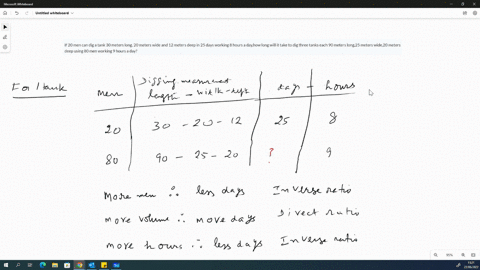 Microsoft Whiteboard
Untitled whiteboard
If 20 men can dig a tank 30 meters long, 20 meters wide and 12 meters deep in 25 days working 8 hours a day,how long will it take to dig three tanks each 90 meters long,25 meters wide,20 meters deep using 80 men working 9 hours a day?
For 1 tank
men Digging measurement length - width - dept days - hours
20 30 - 20 - 12 25 8
80 90 - 25 - 20 ? 9
More men ∴ less days Inverse ratio
more volume ∴ more days Direct ratio
more hours ∴ less days Inverse ratio